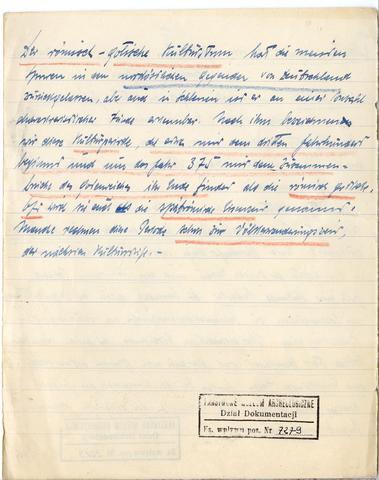 Der römisch-gotische Kulturstrom hat die meisten
Spuren in den nordöstlichen Gegenden von Deutschland
zurückgelassen, aber auch in Schlesien ist er an einer Anzahl
charakteristischer Funde erkennbar. Nach ihm bezeichnen
wir diese Kulturperiode, die etwa mit dem dritten Jahrhundert
beginnt und um das Jahr 375 mit dem Zusammen-
bruche des Gotenreiches ihr Ende findet als die römisch-gotische.
Oft wird sie auch als die spätrömische genannt.
Manche rechnen diese Periode schon zur Völkerwanderungszeit,
der nächsten Kulturstufe. -
PAŃSTWOWE MUZEUM ARCHEOLOGICZNE
Dział Dokumentacji
Ks. wpływu poz. Nr 7279